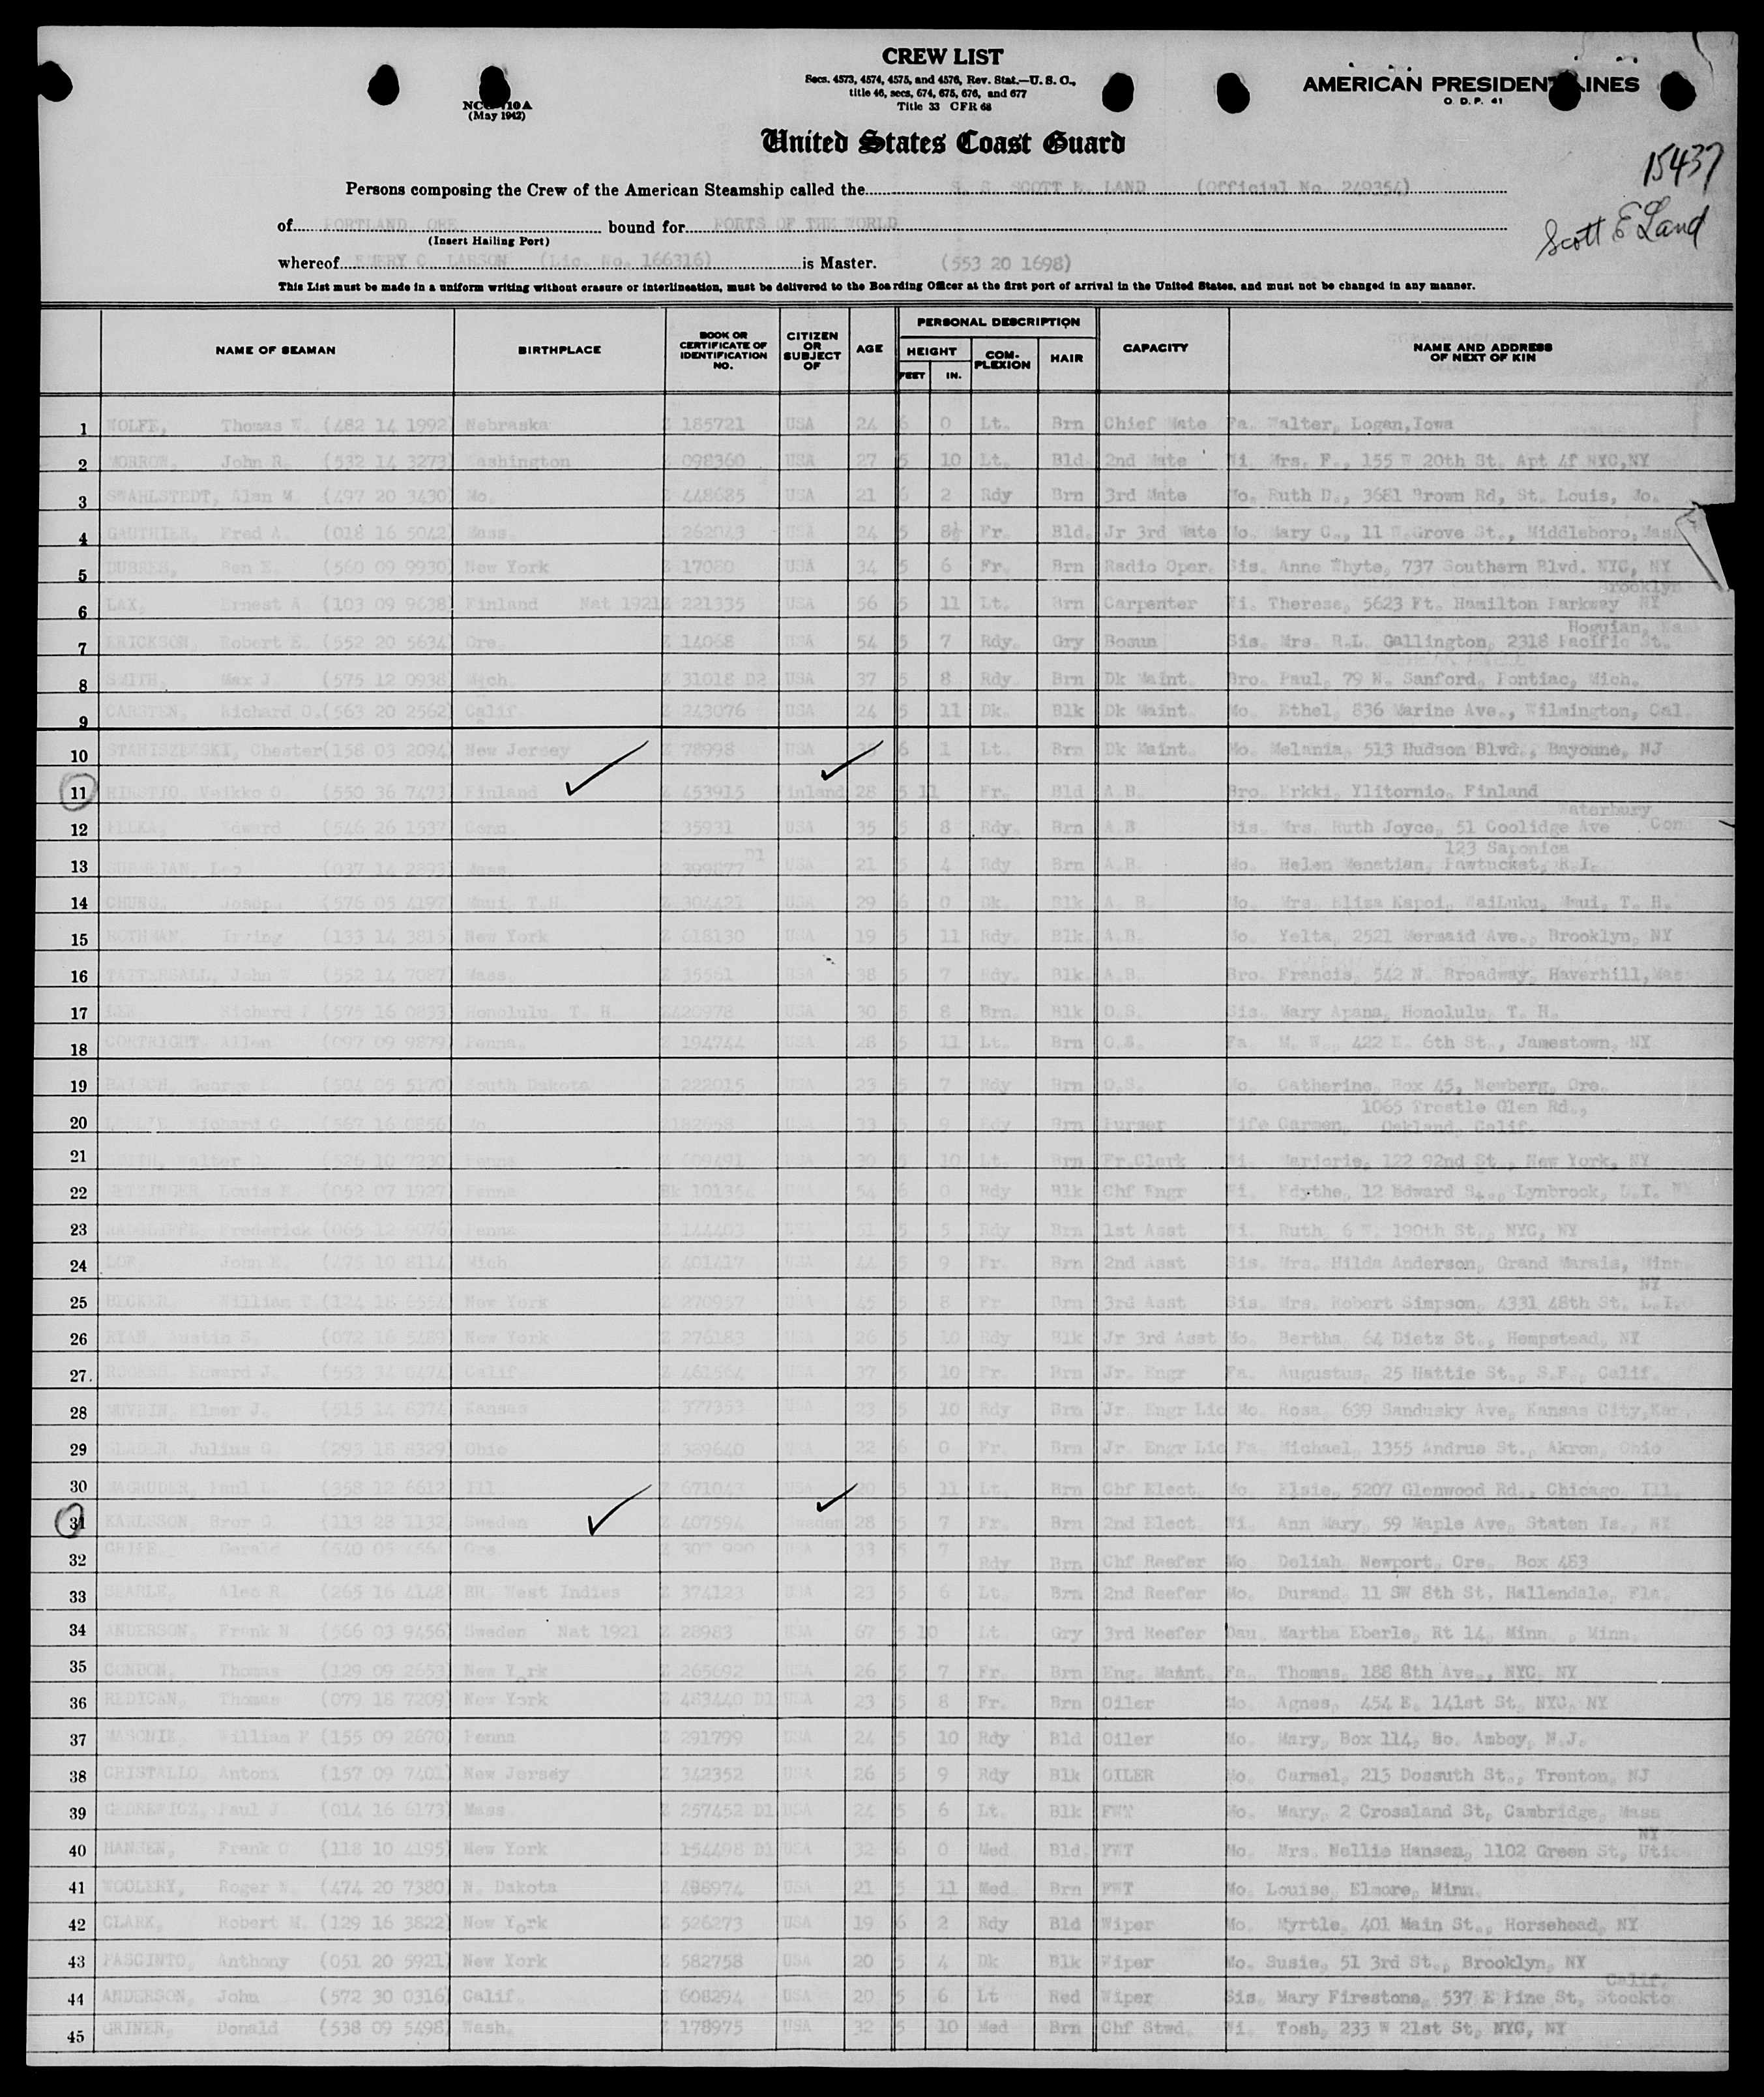 CREW LIST
Secs. 4573, 4574, 4575, and 4576, Rev. Stat.—U. S. C.,
title 46, secs, 674, 675, 676, and 677
Title 33 CFR 68
(May 1942)
AMERICAN PRESIDENT LINES
O. D. P. 41
United States Coast Guard
15437
Scott E Land
Persons composing the Crew of the American Steamship called the S. S. SCOTT E. LAND (Official No. 249354)
of PORTLAND, ORE. bound for PORTS OF THE WORLD
(Insert Hailing Port)
whereof EMERY C. LARSON (Lic. No. 166316) is Master. (553 20 1698)
This List must be made in a uniform writing without erasure or interlineation, must be delivered to the Boarding Officer at the first port of arrival in the United States, and must not be changed in any manner.
NAME OF SEAMAN BIRTHPLACE BOOK OR CERTIFICATE OF IDENTIFICATION NO. CITIZEN OR SUBJECT OF AGE PERSONAL DESCRIPTION HEIGHT FEET IN. COM-PLEXION HAIR CAPACITY NAME AND ADDRESS OF NEXT OF KIN
1 WOLFE, Thomas W. (482 14 1992) Nebraska Z 185721 USA 24 6 0 Lt. Brn Chief Mate Fa. Walter, Logan, Iowa
2 MORROW, John R. (532 14 3273) Washington Z 098360 USA 27 5 10 Lt. Bld 2nd Mate Wi. Mrs. F., 155 W 20th St. Apt 4f NYC, NY
3 SWAHLSTEDT, Alan M. (497 20 3430) Mo. Z 448685 USA 21 6 2 Rdy Brn 3rd Mate Mo. Ruth D., 3681 Brown Rd, St. Louis, Mo.
4 GAUTHIER, Fred A. (018 16 5042) Mass. Z 262043 USA 24 5 8½ Fr. Bld. Jr 3rd Mate Mo. Mary C., 11 W.Grove St., Middleboro, Mass
5 Ben E. (560 09 9930) New York Z 17080 USA 34 5 6 Fr. Brn Radio Oper. Sis. Anne Whyte, 737 Southern Blvd. NYC, NY
6 LAX, Ernest A. (103 09 9638) Finland Nat 1921 Z 221335 USA 56 5 11 Lt. Brn Carpenter Wi. Therese, 5623 Ft. Hamilton Parkway Brooklyn NY
7 ERICKSON, Robert E. (552 20 5634) Ore. Z 14068 USA 54 5 7 Rdy. Gry Bosun Sis. Mrs. R.L. Gallington, 2318 Pacific St.
8 SMITH, Max J. (575 12 0938) Mich. Z 31018 D2 USA 37 5 8 Rdy. Brn Dk Maint. Bro. Paul, 79 N. Sanford, Pontiac, Mich.
9 CARSTEN, Richard O. (563 20 2562) Calif. Z 243076 USA 24 5 11 Dk. Blk Dk Maint. Mo. Ethel, 836 Marine Ave., Wilmington, Cal.
10 STANISZEWSKI, Chester (158 03 2094) New Jersey Z 78998 USA 6 1 Lt. Brn Dk Maint. Mo. Melania, 513 Hudson Blvd., Bayonne, NJ
11 Veikko O. (550 36 7473) Finland Z 453915 Finland 28 5 11 Fr. Bld A.B. Bro. Erkki, Ylitornio, Finland
12 Edward (546 26 1537) Conn Z 35931 USA 35 5 8 Rdy. Brn A.B. Sis. Mrs. Ruth Joyce, 51 Coolidge Ave Waterbury Con
13 Leo Mass. Z 399877 D1 USA 21 5 4 Rdy Brn A.B. Mo. Helen 123 Saponica Pawtucket, R.I.
14 CHUNG, Joseph (576 05 4197) Maui, T.H. Z 304421 USA 29 6 0 Dk. Blk A. B. Mo. Mrs. Eliza Kapoi, WaiLuku, Maui, T. H.
15 ROTHMAN, Irving (133 14 3815) New York Z 618130 USA 19 5 11 Rdy. Blk A.B. Mo. Yelta, 2521 Mermaid Ave., Brooklyn, NY
16 TATTERSALL, John (552 14 7087) Mass. Z 35561 USA 38 5 7 Rdy. Blk A.B. Bro. Francis, 542 N. Broadway, Haverhill, Mas
17 LEE Richard (575 16 0833) Honolulu, T. H. Z420978 USA 30 5 8 Brn. Blk O.S. Sis. Mary Apana, Honolulu, T. H.
18 CORTRIGHT, Allen (097 09 9879) Penna. Z 194744 USA 28 5 11 Lt. Brn O.S. Fa. M. W., 422 E. 6th St., Jamestown, NY
19 George (504 05 5170) South Dakota Z 222015 USA 23 5 7 Rdy Brn O.S. Mo. Catherine, Box 45, Newberg, Ore.
20 Richard C. (567 16 0856) Mo. USA 33 5 9 Rdy Brn Purser Wife Carmen, 1065 Trestle Glen Rd., Oakland, Calif.
21 SMITH, Walter (526 10 7230) Penna Z 609491 USA 30 5 10 Lt. Brn Fr.Clerk Wi. Marjorie, 122 92nd St., New York, NY
22 Louis (052 07 1927) Penna Bk 101354 USA 54 6 0 Rdy Blk Chf Engr Wi. Edythe, 12 Edward St., Lynbrook, L.I.
23 RADCLIFFE, Frederick (066 12 9076) Penna Z 144403 USA 51 5 5 Rdy Brn 1st Asst Wi. Ruth, 6 W. 190th St., NYC, NY
24 LOE, John E. (475 10 8114) Mich. Z 401417 USA 44 5 9 Fr. Brn 2nd Asst Sis. Mrs. Hilda Anderson, Grand Marais, Minn.
25 HECKER, William (124 18 6554) New York Z 270957 USA 45 5 8 Fr. Brn 3rd Asst Sis. Mrs. Robert Simpson, 4331 48th St. L.I. NY
26 RYAN, Austin S. (072 16 5489) New York Z 276183 USA 26 5 10 Rdy Blk Jr 3rd Asst Mo. Bertha, 64 Dietz St., Hempstead, NY
27. Edward J. (553 34 0474) Calif. Z 461564 USA 37 5 10 Fr. Brn Jr. Engr Fa. Augustus, 25 Hattie St., S.F., Calif.
28 Elmer J. (515 14 8374) Kansas Z 377353 USA 23 5 10 Rdy Brn Jr. Engr Lic Mo. Rosa, 639 Sandusky Ave, Kansas City, Kan.
29 Julius G. (293 18 8329) Ohio Z 389640 USA 22 6 0 Fr. Brn Jr. Engr Lic Fa. Michael, 1355 Andrus St., Akron, Ohio
30 MAGRUDER, Paul L. (358 12 6612) Ill. Z 671043 USA 20 5 11 Lt. Brn Chf Elect. Mo. Elsie, 5207 Glenwood Rd., Chicago, Ill.
31 KARLSSON, Bror G. (113 28 1132) Sweden Z 407594 Sweden 28 5 7 Fr. Brn 2nd Elect Wi. Ann Mary, 59 Maple Ave, Staten Is., NY
32 Gerald Ore. USA 33 5 7 Rdy Brn Chf Reefer Mo. Deliah, Newport, Ore. Box 483
33 SEARLE, Alec R. (265 16 4148) BR. West Indies Z 374123 USA 23 5 6 Lt. Brn 2nd Reefer Mo. Durand, 11 SW 8th St. Hallendale, Fla.
34 ANDERSON, Frank N. (566 03 9456) Sweden Nat 1921 Z 28983 USA 67 5 10 Lt Gry 3rd Reefer Dau. Martha Eberle, Rt 14, Minn. , Minn.
35 CONDON, Thomas (129 09 2653) New York Z 265692 USA 26 5 7 Fr. Brn Eng. Maint. Fa. Thomas, 188 8th Ave., NYC, NY
36 REDICAN, Thomas (079 18 7209) New York Z 483440 D1 USA 23 5 8 Fr. Brn Oiler Mo. Agnes, 454 E. 141st St. NYC, NY
37 William (155 09 2670) Penna Z 291799 USA 24 5 10 Rdy Bld Oiler Mo. Mary, Box 114, So. Amboy, N.J.
38 CRISTALLO, Antoni (157 09 7401) New Jersey Z 342352 USA 26 5 9 Rdy Blk OILER Mo. Carmel, 215 Dossuth St., Trenton, NJ
39 GEDREWICZ, Paul J. (014 16 6173) Mass Z 257452 D1 USA 24 5 6 Lt. Blk FWT Mo. Mary, 2 Crossland St, Cambridge, Mass
40 HANSEN, Frank C. (118 10 4195) New York Z 154498 D1 USA 32 6 0 Med Bld. FWT Mo. Mrs. Nellie Hansen, 1102 Green St, Utic NY
41 WOOLERY, Roger W. (474 20 7380) N. Dakota Z 488974 USA 21 5 11 Med Brn FWT Mo. Louise, Elmore, Minn.
42 CLARK, Robert M. (129 16 3822) New York Z 526273 USA 19 6 2 Rdy Bld Wiper Mo. Myrtle, 401 Main St., Horsehead, NY
43 PASCINTO, Anthony (051 20 5921) New York Z 582758 USA 20 5 4 Dk Blk Wiper Mo. Susie, 51 3rd St., Brooklyn, NY
44 ANDERSON, John (572 30 0316) Calif. Z 608294 USA 20 5 6 Lt Red Wiper Sis. Mary Firestone, 537 E Pine St, Stockto Calif.
45 GRINER, Donald (538 09 5498) Wash. Z 178975 USA 32 5 10 Med Brn Chf Stwd. Wi. Tosh, 233 W 21st St, NYC, NY